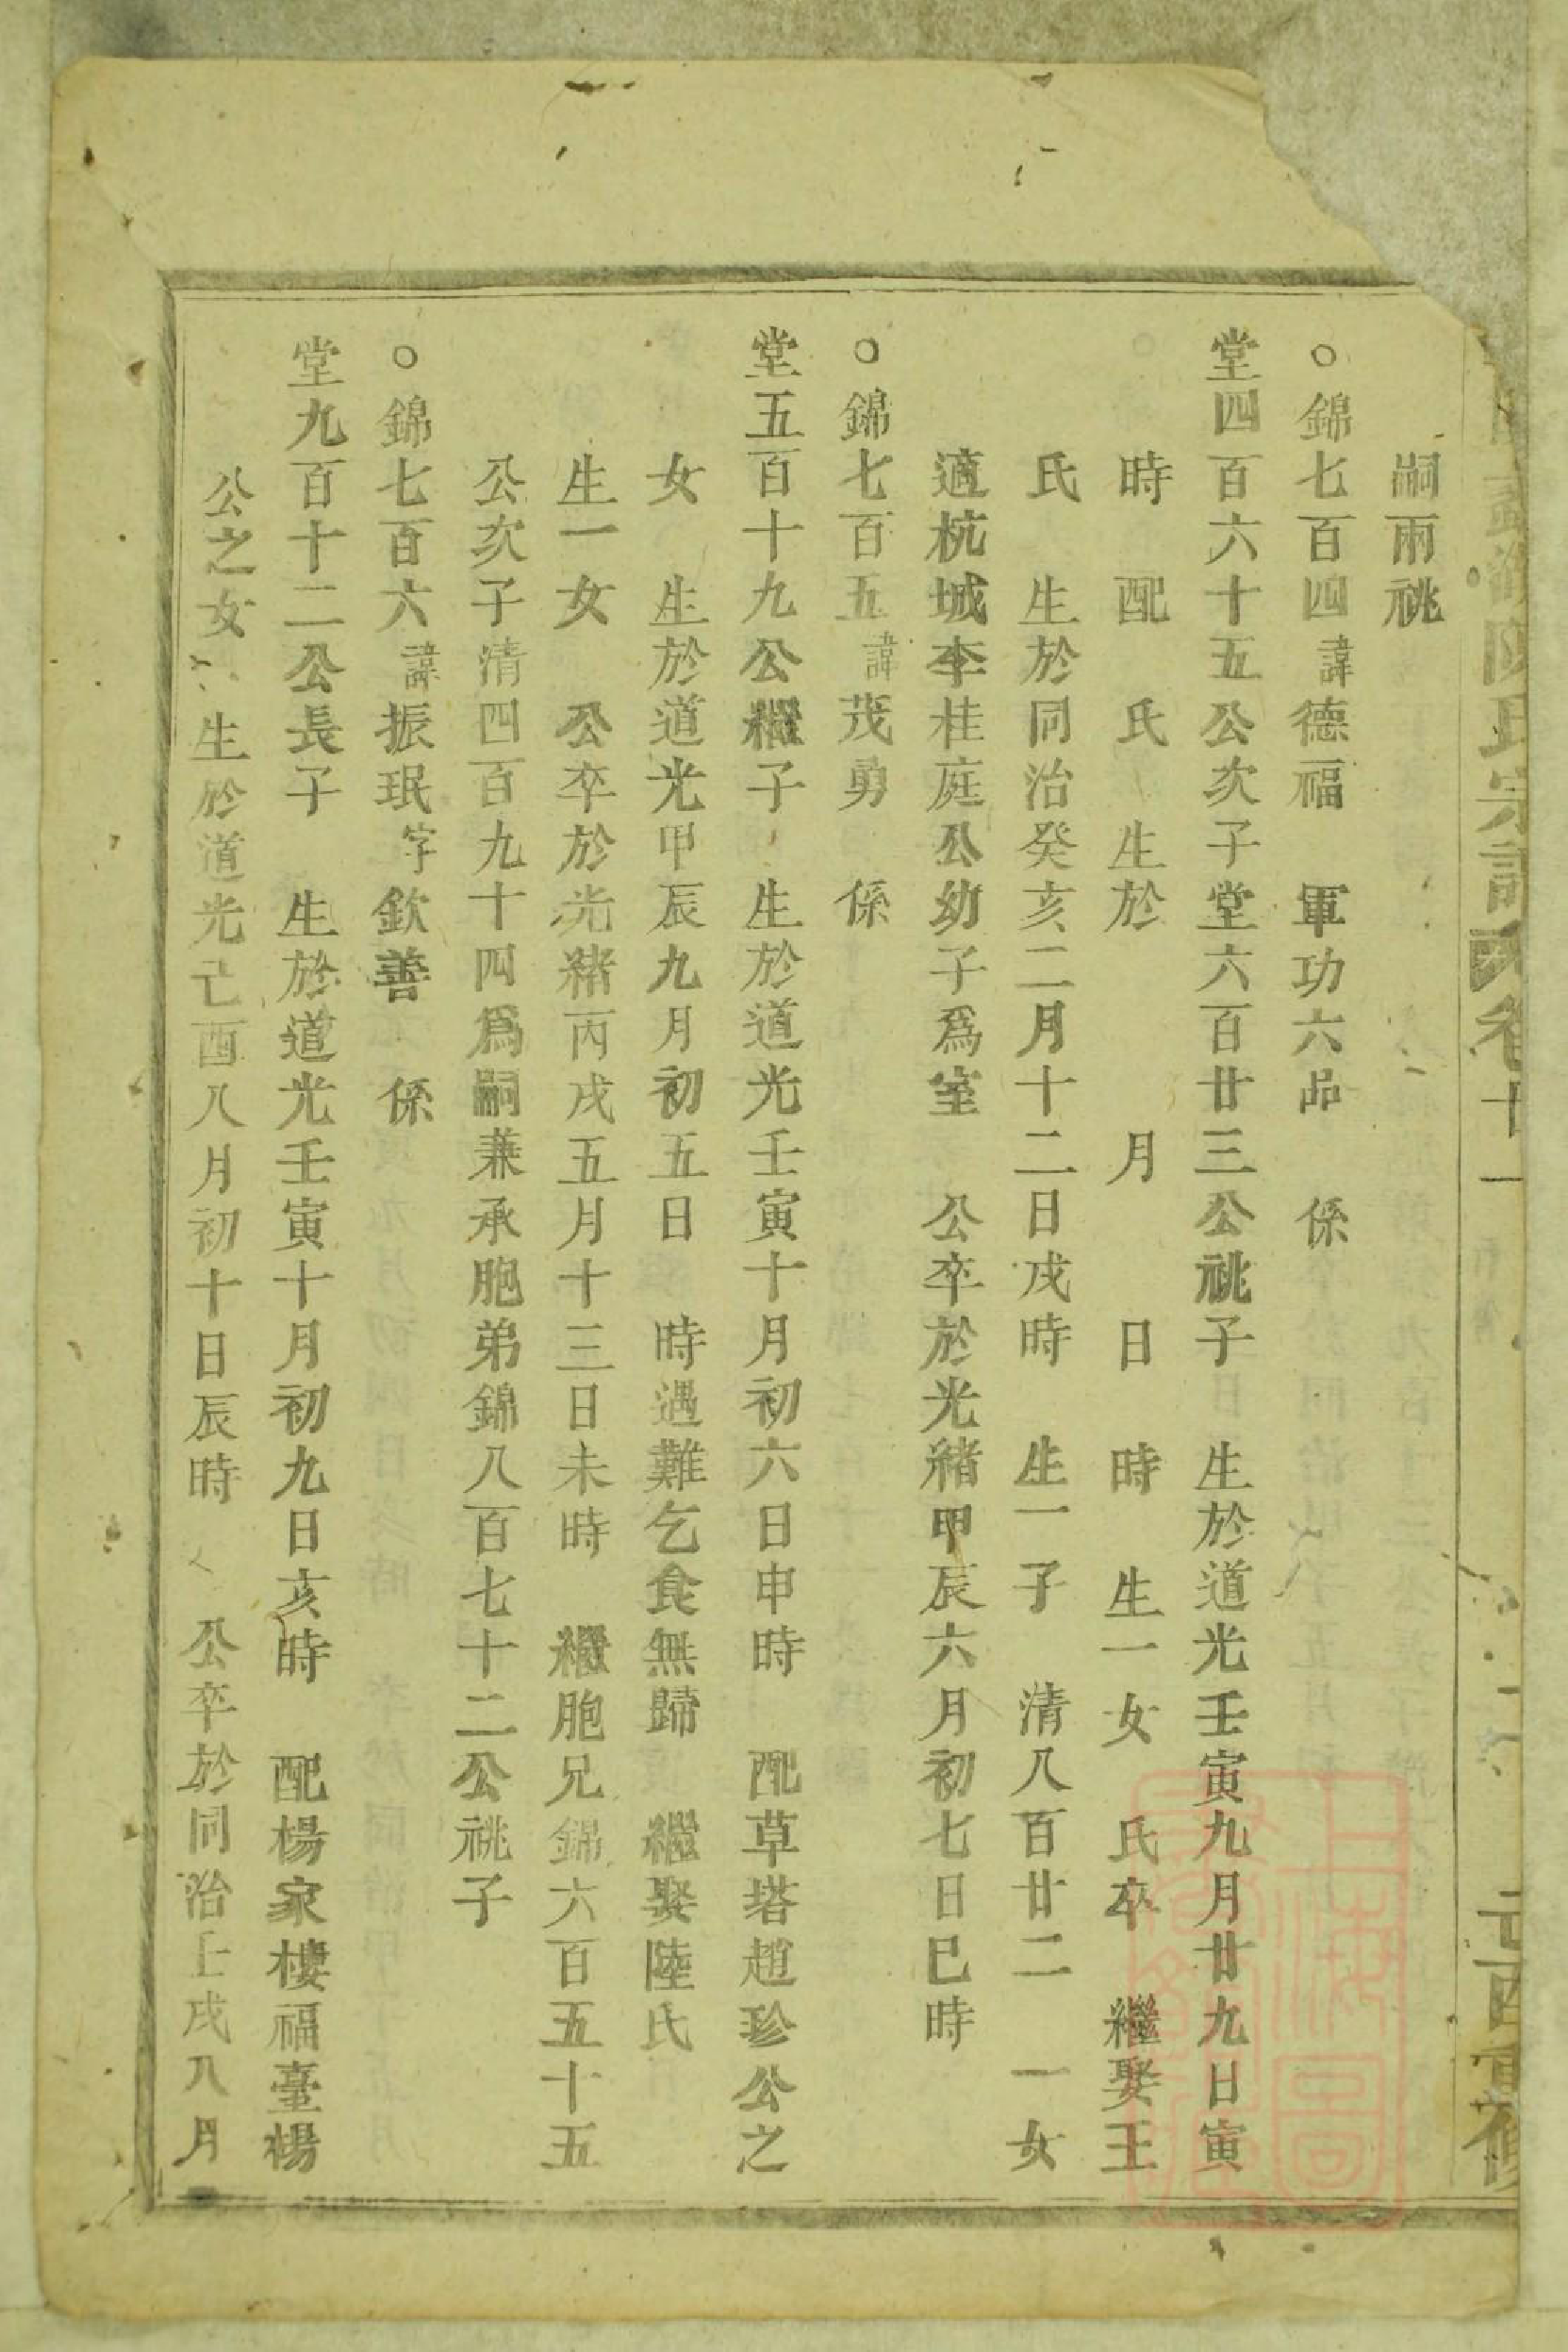 陳氏宗譜 卷十一
嗣兩祧
○錦七百四諱德福 軍功六品 係
堂四百六十五公次子堂六百廿三公祧子 生於道光壬寅九月廿九日寅
時 配 氏 生於 月 日 時 生一女 氏卒 繼娶王
氏 生於同治癸亥二月十二日戌時 生一子 清八百廿二 一女
適杭城李桂庭公幼子為室 公卒於光緒甲辰六月初七日巳時
○錦七百五諱茂勇 係
堂五百十九公繼子 生於道光壬寅十月初六日申時 配草塔趙珍公之
女 生於道光甲辰九月初五日 時遇難乞食無歸 繼娶陸氏
生一女 公卒於光緒丙戌五月十三日未時 繼胞兄錦六百五十五
公次子清四百九十四爲嗣兼承胞弟錦八百七十二公祧子
○錦七百六諱振珉字欽善 係
堂九百十二公長子 生於道光壬寅十月初九日亥時 配楊家樓福臺楊
公之女 生於道光己酉八月初十日辰時 公卒於同治壬戌八月
上海圖書館藏